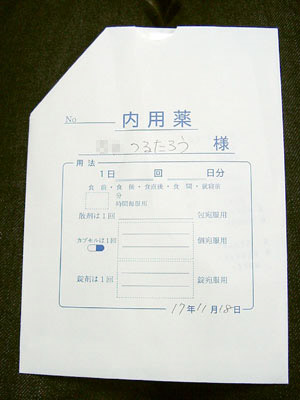 No
内用薬
つるたろう 様
用法
1日 回 日分
食前・食後・食直後・食間・就寝前
分
時間毎服用
散剤は1回 包宛服用
カプセルは1回 個宛服用
錠剤は1回 錠宛服用
17年11月18日